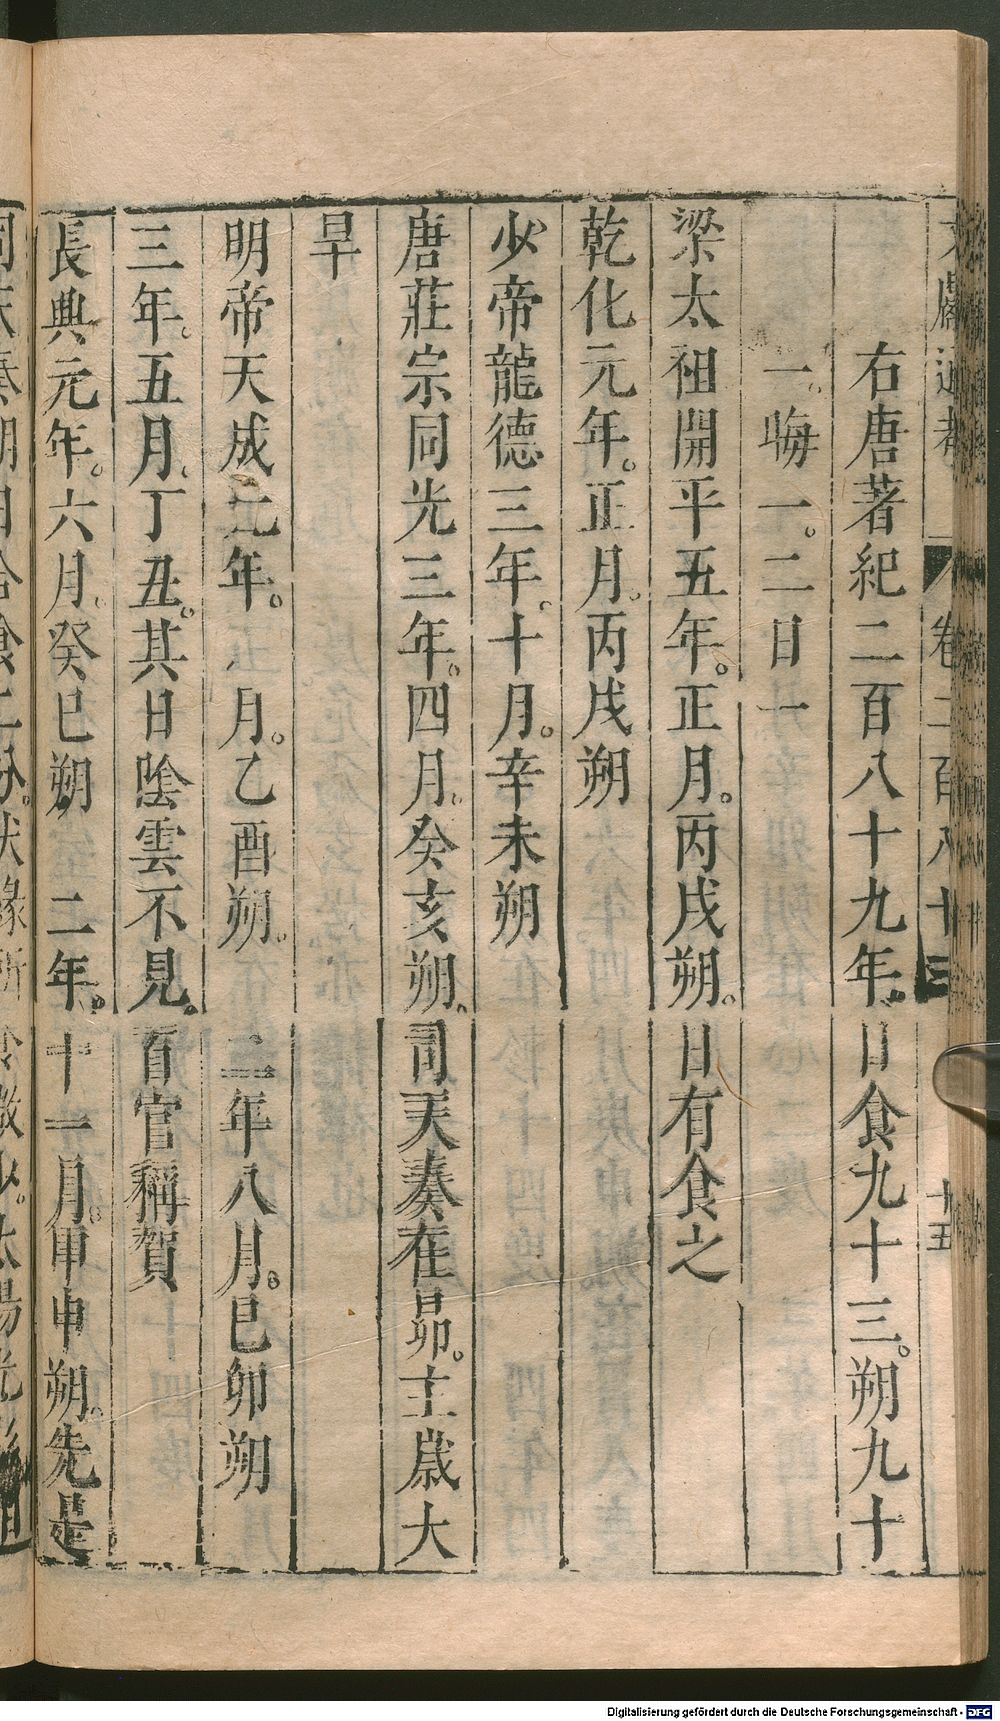 右唐著紀二百八十九年。日食九十三。朔九十
一。晦一。二日一
梁太祖開平五年。正月。丙戌朔。日有食之
乾化元年。正月。丙戌朔
少帝龍德三年。十月。辛未朔
唐莊宗同光三年。四月。癸亥朔。司天奏在昴。主歲大
旱
明帝天成元年。 月。乙酉朔。 二年八月。己卯朔
三年。五月。丁丑。其日陰雲不見。百官稱賀
長興元年。六月。癸巳朔 二年。十一月。甲申朔。先是
Digitalisierung gefördert durch die Deutsche Forschungsgemeinschaft - DFG